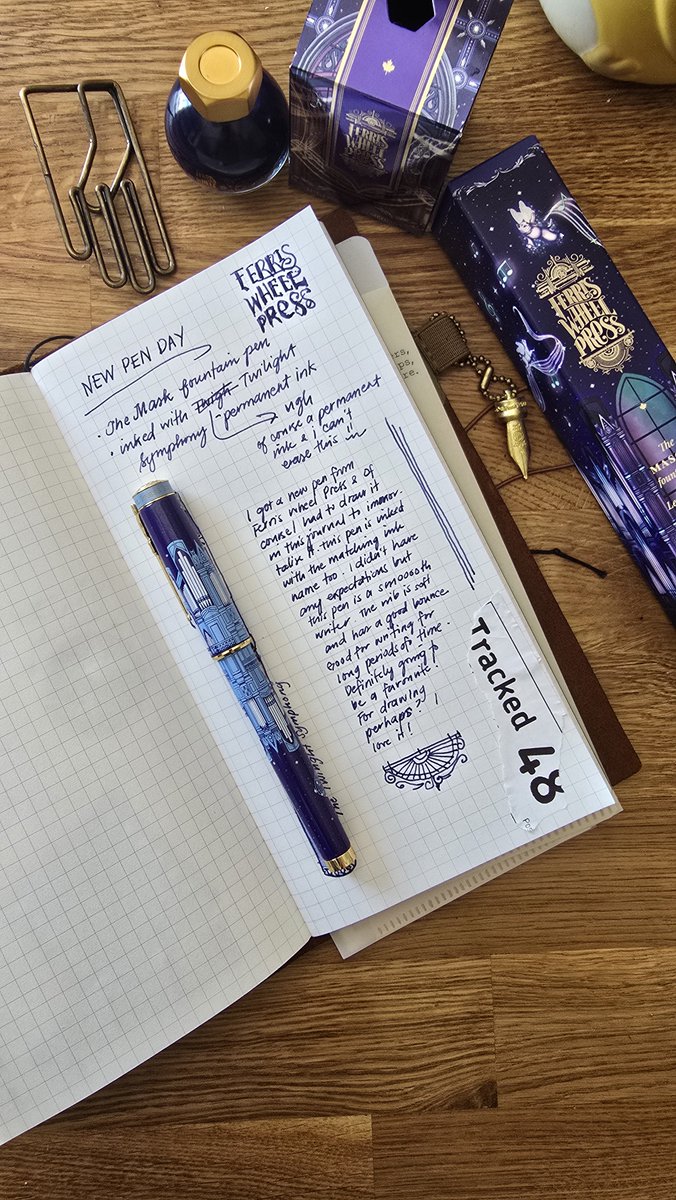 FERRIS
WHEEL
PRESS
NEW PEN DAY
• The Mask fountain pen
• inked with Twilight
Symphony permanent ink
ugh
of course a permanent
ink & I can't
erase this !!
I got a new pen from
Ferris Wheel Press & of
course I had to draw it
in this journal to immor-
talise it. this pen is inked
with the matching ink
name too. I didn't have
any expectations but
this pen is a smooooth
writer. The nib is soft
and has a good bounce
Good for writing for
long periods of time.
Definitely going to
be a favorite.
For drawing
perhaps? I
love it!
The Twilight Symphony
Tracked 48
FERRIS
WHEEL
PRESS
FERRIS
WHEEL
PRESS
The
MAS
foun
Le